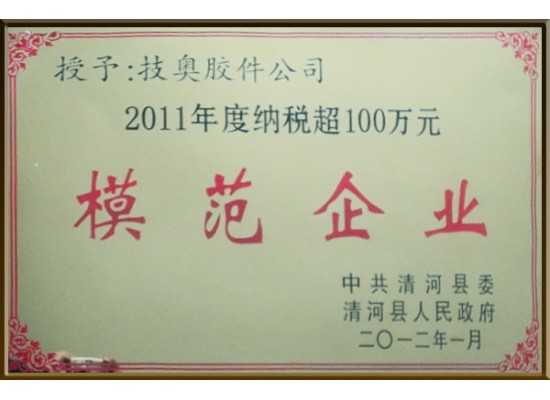 授予:技奥胶件公司
2011年度纳税超100万元
模范企业
中共清河县委
清河县人民政府
二〇一二年一月